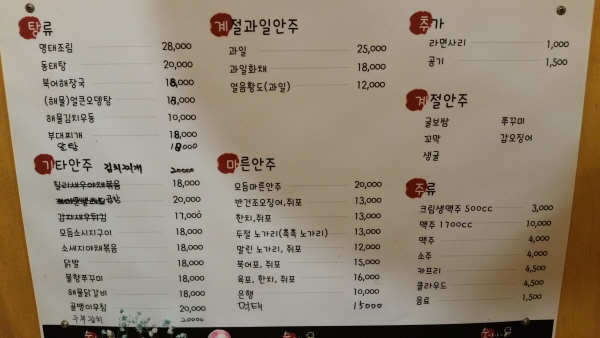 탕류
명태조림 28,000
동태탕 20,000
북어해장국 18,000
(해물)얼큰오뎅탕 18,000
해물김치우동 10,000
부대찌개 18,000
알탕 18000
기타안주 김치찌개 20000
칠리새우야채볶음 18,000
20,000
감자새우튀김 17,000
모듬소시지구이 18,000
소세지야채볶음 18,000
닭발 18,000
불향쭈꾸미 18,000
해물닭갈비 18,000
골뱅이무침 20,000
두부김치 20000
계절과일안주
과일 25,000
과일화채 18,000
얼음황도(과일) 12,000
마른안주
모듬마른안주 20,000
반건조오징어,쥐포 13,000
한치,쥐포 13,000
두절 노가리(촉촉 노가리) 13,000
말린 노가리, 쥐포 12,000
북어포, 쥐포 15,000
육포, 한치, 쥐포 16,000
은행 10,000
먹태 15000
추가
라면사리 1,000
공기 1,500
계절안주
굴보쌈 쭈꾸미
꼬막 갑오징어
생굴
주류
크림생맥주 500cc 3,000
맥주 1700cc 10,000
맥주 4,000
소주 4,000
카프리 4,500
클라우드 4,500
음료 1,500